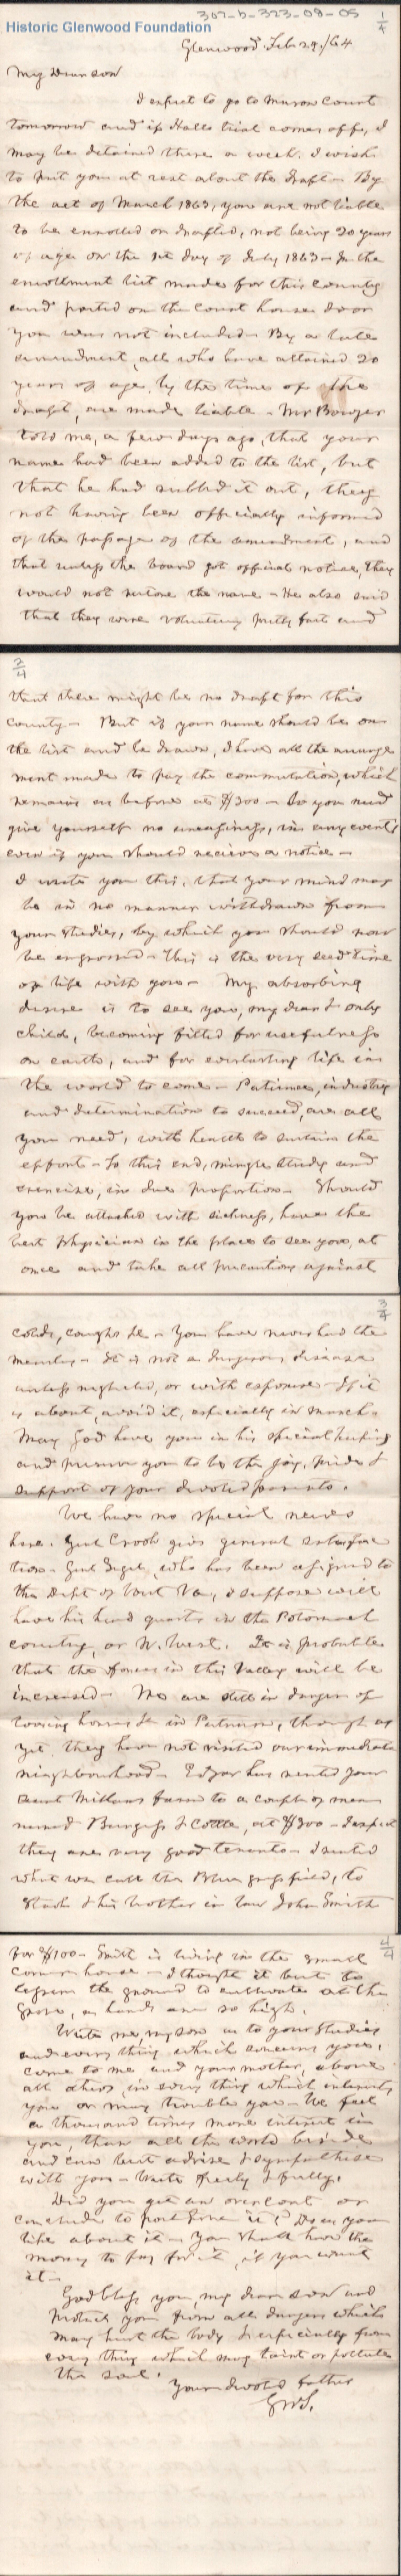 307-b-323-08-05
1/4
Historic Glenwood Foundation
Glenwood Feb 29/64
My Dear son
I expect to go to Mason Court
tomorrow and if Halls trial comes off, I
may be detained there a week. I wish
to put you at rest about the draft - By
the act of March 1863, you are not liable
to be enrolled or drafted, not being 20 years
of age on the 1st day of July 1863 - In the
enrollment list made for this county
and posted on the Court house door
you were not included - By a late
amendment, all who have attained 20
years of age, by the time of the
draft, are made liable - Mr Bowyer
told me, a few days ago, that your
name had been added to the list, but
that he had rubbed it out, they
not having been officially informed
of the passage of the amendment, and
that unless the board got official notice, they
would not restore the name - He also said
that they were volunteering pretty fast and
2/4
that there might be no draft for this
county - But if your name should be on
the list and be drawn, I have all the arrange
ment made to pay the commutation, which
remains as before at $300 - So you need
give yourself no uneasiness, in any event,
even if you should receive a notice -
I write you this, that your mind may
be in no manner withdrawn from
your studies, by which you should now
be engrossed - This is the very seed time
of life with you - My absorbing
desire is to see you, my dear & only
child, becoming fitted for usefulness
on earth, and for everlasting life in
the world to come - Patience, industry
and determination to succeed, are all
you need, with health to sustain the
effort - To this end, mingle study and
exercise, in due proportion - Should
you be attacked with sickness, have the
best physician in the place to see you, at
once and take all precautions against
3/4
colds, coughs &c - You have never had the
measles - It is not a dangerous disease
unless neglected, or with exposure - If it
is about, avoid it, especially in March -
May God have you in his special keeping
and preserve you to be the joy, pride &
support of your devoted parents.
We have no special news
here. Genl Crook gives general satisfac
tion - Genl Sigel, who has been assigned to
the Dept of West Va, I suppose will
have his head quarters in the Potomac
country, or N. West. It is probable
that the forces in this Valley will be
increased - We are still in danger of
loosing horses &c in Putnam, though as
yet they have not visited our immediate
neighbourhood - Edgar has rented your
aunt farm to a couple of men
named Burgess & Cottle, at $300 - I expect
they are very good tenants - I rented
what we call the Blue grass field, to
& his brother in law John Smith
4/4
for $100 - Smith is living in the small
corner house - I thought it best to
lessen the ground to cultivate at the
Grove, as hands are so high.
Write me, my son as to your studies
and every thing which concerns you,
come to me and your mother, above
all others, in every thing which interests
you or may trouble you - We feel
a thousand times more interest in
you, than all the world beside
and can best advise & sympathise
with you - Write freely & fully.
Did you get an overcoat or
conclude to postpone it? Do as you
like about it - You shall have the
money to pay for it, if you want
it -
God bless you, my dear son and
protect you from all dangers which
may hurt the body & especially from
every thing which may taint or pollute
the soul.
Your devoted father
GWS.